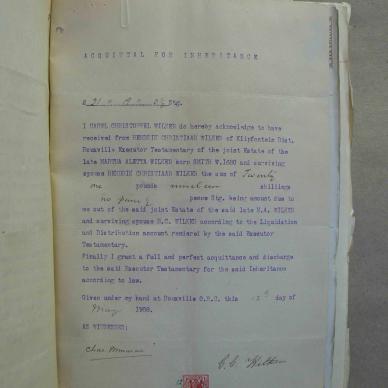 ACQUITTAL FOR INHERITANCE
£ 21. Stg.
I CAREL CHRISTOFFEL WILKEN do hereby acknowledge to have
received from HENDRIK CHRISTIAAN WILKEN of Klipfontein Dist.
Rouxville Executor Testamentary of the joint Estate of the
late MARTHA ALETTA WILKEN born SMITH and surviving
spouse HENDRIK CHRISTIAAN WILKEN the sum of Twenty
one pounds nineteen shillings
no penny pence Stg. being amount due to
me out of the said joint Estate of the said late M.A. WILKEN
and surviving spouse H.C. WILKEN according to the Liquidation
and Distribution account rendered by the said Executor
Testamentary.
Finally I grant a full and perfect acquittance and discharge
to the said Executor Testamentary for the said Inheritance
according to law.
Given under my hand at Rouxville O.R.C. this day of
May 1908.
AS WITNESSES:
C. C. Wilken